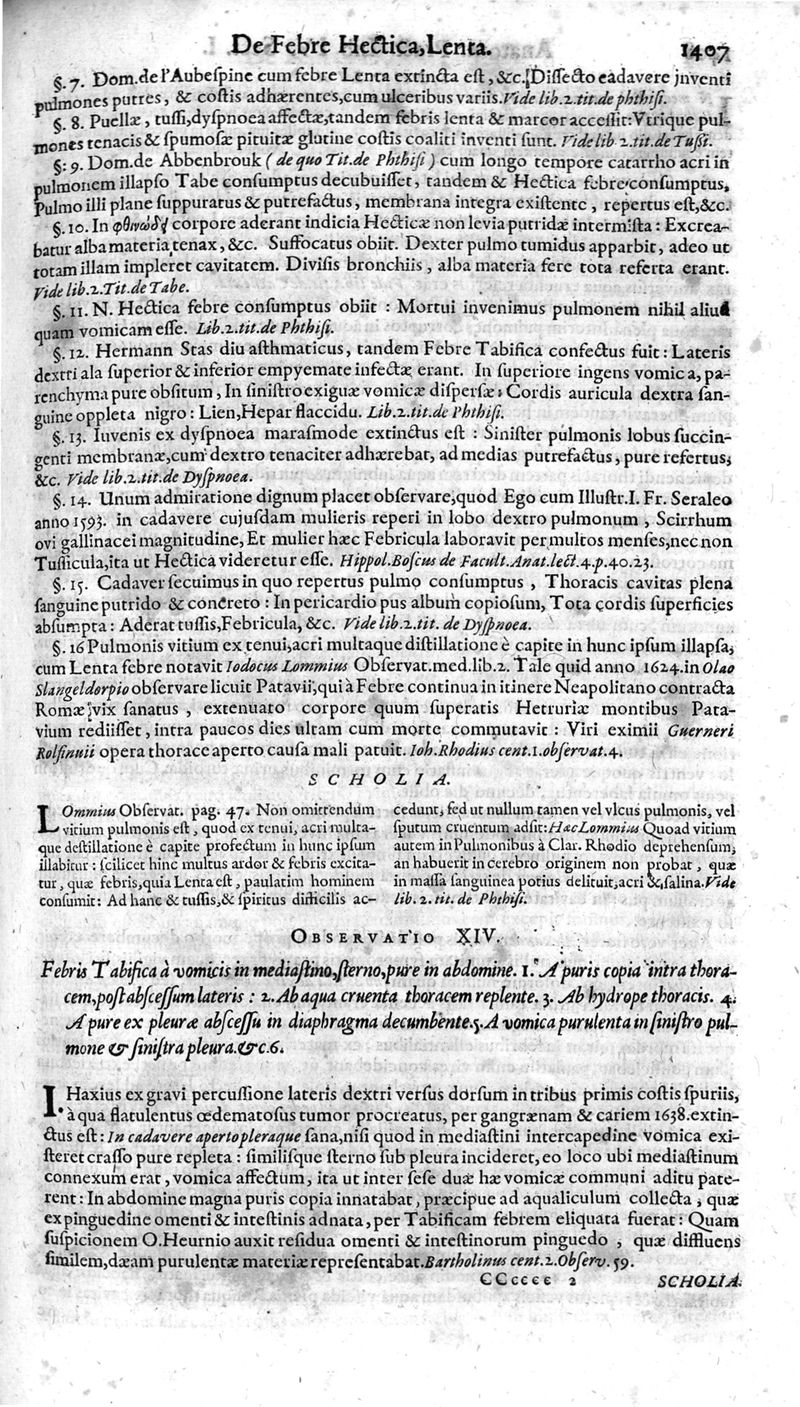 De Febre Hectica, Lenta. 1407
§. 7. Dom. de l'Aubespine cum febre Lenta extincta est, &c. Dissecto cadavere jnventi
pulmones putres, & costis adhærentes, cum ulceribus variis. Vide lib. 2. tit. de phthisi.
§. 8. Puellæ, tussi, dyspnoea affectæ, tandem febris lenta & marcor accessit: Vtrique pul-
mones tenacis & spumosæ pituitæ glutine costis coaliti inventi sunt. Vide lib. 2. tit. de Tussi.
§: 9. Dom. de Abbenbrouk (de quo Tit. de Phthisi) cum longo tempore catarrho acri in
pulmonem illapso Tabe consumptus decubuisset, tandem & Hectica febre consumptus,
Pulmo illi plane suppuratus & putrefactus, membrana integra existente, repertus est, &c.
§. 10. In corpore aderant indicia Hecticæ non levia putridæ intermista: Excrea-
batur alba materia tenax, &c. Suffocatus obiit. Dexter pulmo tumidus apparbit, adeo ut
totam illam impleret cavitatem. Divisis bronchiis, alba materia fere tota referta erant.
Vide lib. 2. Tit. de Tabe.
§. 11. N. Hectica febre consumptus obiit: Mortui invenimus pulmonem nihil aliud
quam vomicam esse. Lib. 2. tit. de Phthisi.
§. 12. Hermann Stas diu asthmaticus, tandem Febre Tabifica confectus fuit: Lateris
dextri ala superior & inferior empyemate infectæ erant. In superiore ingens vomica, pa-
renchyma pure obsitum, In sinistro exiguæ vomicæ dispersæ: Cordis auricula dextra san-
guine oppleta nigro: Lien, Hepar flaccidu. Lib. 2. tit. de Phthisi.
§. 13. Iuvenis ex dyspnoea marasmode extinctus est: Sinister pulmonis lobus succin-
genti membranæ, cum dextro tenaciter adhærebat, ad medias putrefactus, pure refertus;
&c. Vide lib. 2. tit. de Dyspnoea.
§. 14. Unum admiratione dignum placet observare, quod Ego cum Illustr. I. Fr. Seraleo
anno 1593. in cadavere cujusdam mulieris reperi in lobo dextro pulmonum, Scirrhum
ovi gallinacei magnitudine, Et mulier hæc Febricula laboravit per multos menses, nec non
Tussicula, ita ut Hectica videretur esse. Hippol. Boscus de Facult. Anat. lect. 4. p. 40. 23.
§. 15. Cadaver secuimus in quo repertus pulmo consumptus, Thoracis cavitas plena
sanguine putrido & concreto: In pericardio pus album copiosum, Tota cordis superficies
absumpta: Aderat tussis, Febricula, &c. Vide lib. 2. tit. de Dyspnoea.
§. 16 Pulmonis vitium ex tenui, acri multaque distillatione è capite in hunc ipsum illapsa,
cum Lenta febre notavit Iodocus Lommius Observat. med. lib. 2. Tale quid anno 1624. in Olao
Slangeldorpio observare licuit Patavii; qui à Febre continua in itinere Neapolitano contracta
Romæ vix sanatus, extenuato corpore quum superatis Hetruriæ montibus Pata-
vium rediisset, intra paucos dies ultam cum morte commutavit: Viri eximii Guerneri
Rolfinuii opera thorace aperto causa mali patuit. Ioh. Rhodius cent. 1. observat. 4.
SCHOLIA.
LOmmius Observat. pag. 47. Non omittendum
vitium pulmonis est, quod ex tenui, acri multa-
que destillatione è capite profectum in hunc ipsum
illabitur: scilicet hinc multus ardor & febris excita-
tur, quæ febris, quia Lenta est, paulatim hominem
consumit: Ad hanc & tussis, & spiritus difficilis ac-
cedunt, sed ut nullum tamen vel vlcus pulmonis, vel
sputum cruentum adsit: Hæc Lommius Quoad vitium
autem in Pulmonibus à Clar. Rhodio deprehensum,
an habuerit in cerebro originem non probat, quæ
in massa sanguinea potius delituit, acri & salina. Vide
lib. 2. tit. de Phthisi.
OBSERVATIO XIV.
Febris Tabifica à vomicis in mediastino, sterno, pure in abdomine. 1. A puris copia intra thora-
cem, post abscessum lateris: 2. Ab aqua cruenta thoracem replente. 3. Ab hydrope thoracis. 4.
A pure ex pleuræ abscessu in diaphragma decumbente. 5. A vomica purulenta in sinistro pul-
mone & sinistra pleura. &c. 6.
I. Haxius ex gravi percussione lateris dextri versus dorsum in tribus primis costis spuriis,
à qua flatulentus œdematosus tumor procreatus, per gangrænam & cariem 1638. extin-
ctus est: In cadavere aperto pleraque sana, nisi quod in mediastini intercapedine vomica exi-
steret crasso pure repleta: similisque sterno sub pleura incideret, eo loco ubi mediastinum
connexum erat, vomica affectum, ita ut inter sese duæ hæ vomicæ communi aditu pate-
rent: In abdomine magna puris copia innatabat, præcipue ad aqualiculum collecta, quæ
ex pinguedine omenti & intestinis adnata, per Tabificam febrem eliquata fuerat: Quam
suspicionem O. Heurnio auxit residua omenti & intestinorum pinguedo, quæ diffluens
similem, dæam purulentæ materiæ repræsentabat. Bartholinus cent. 2. Observ. 59.
CCcccc 2 SCHOLIA.